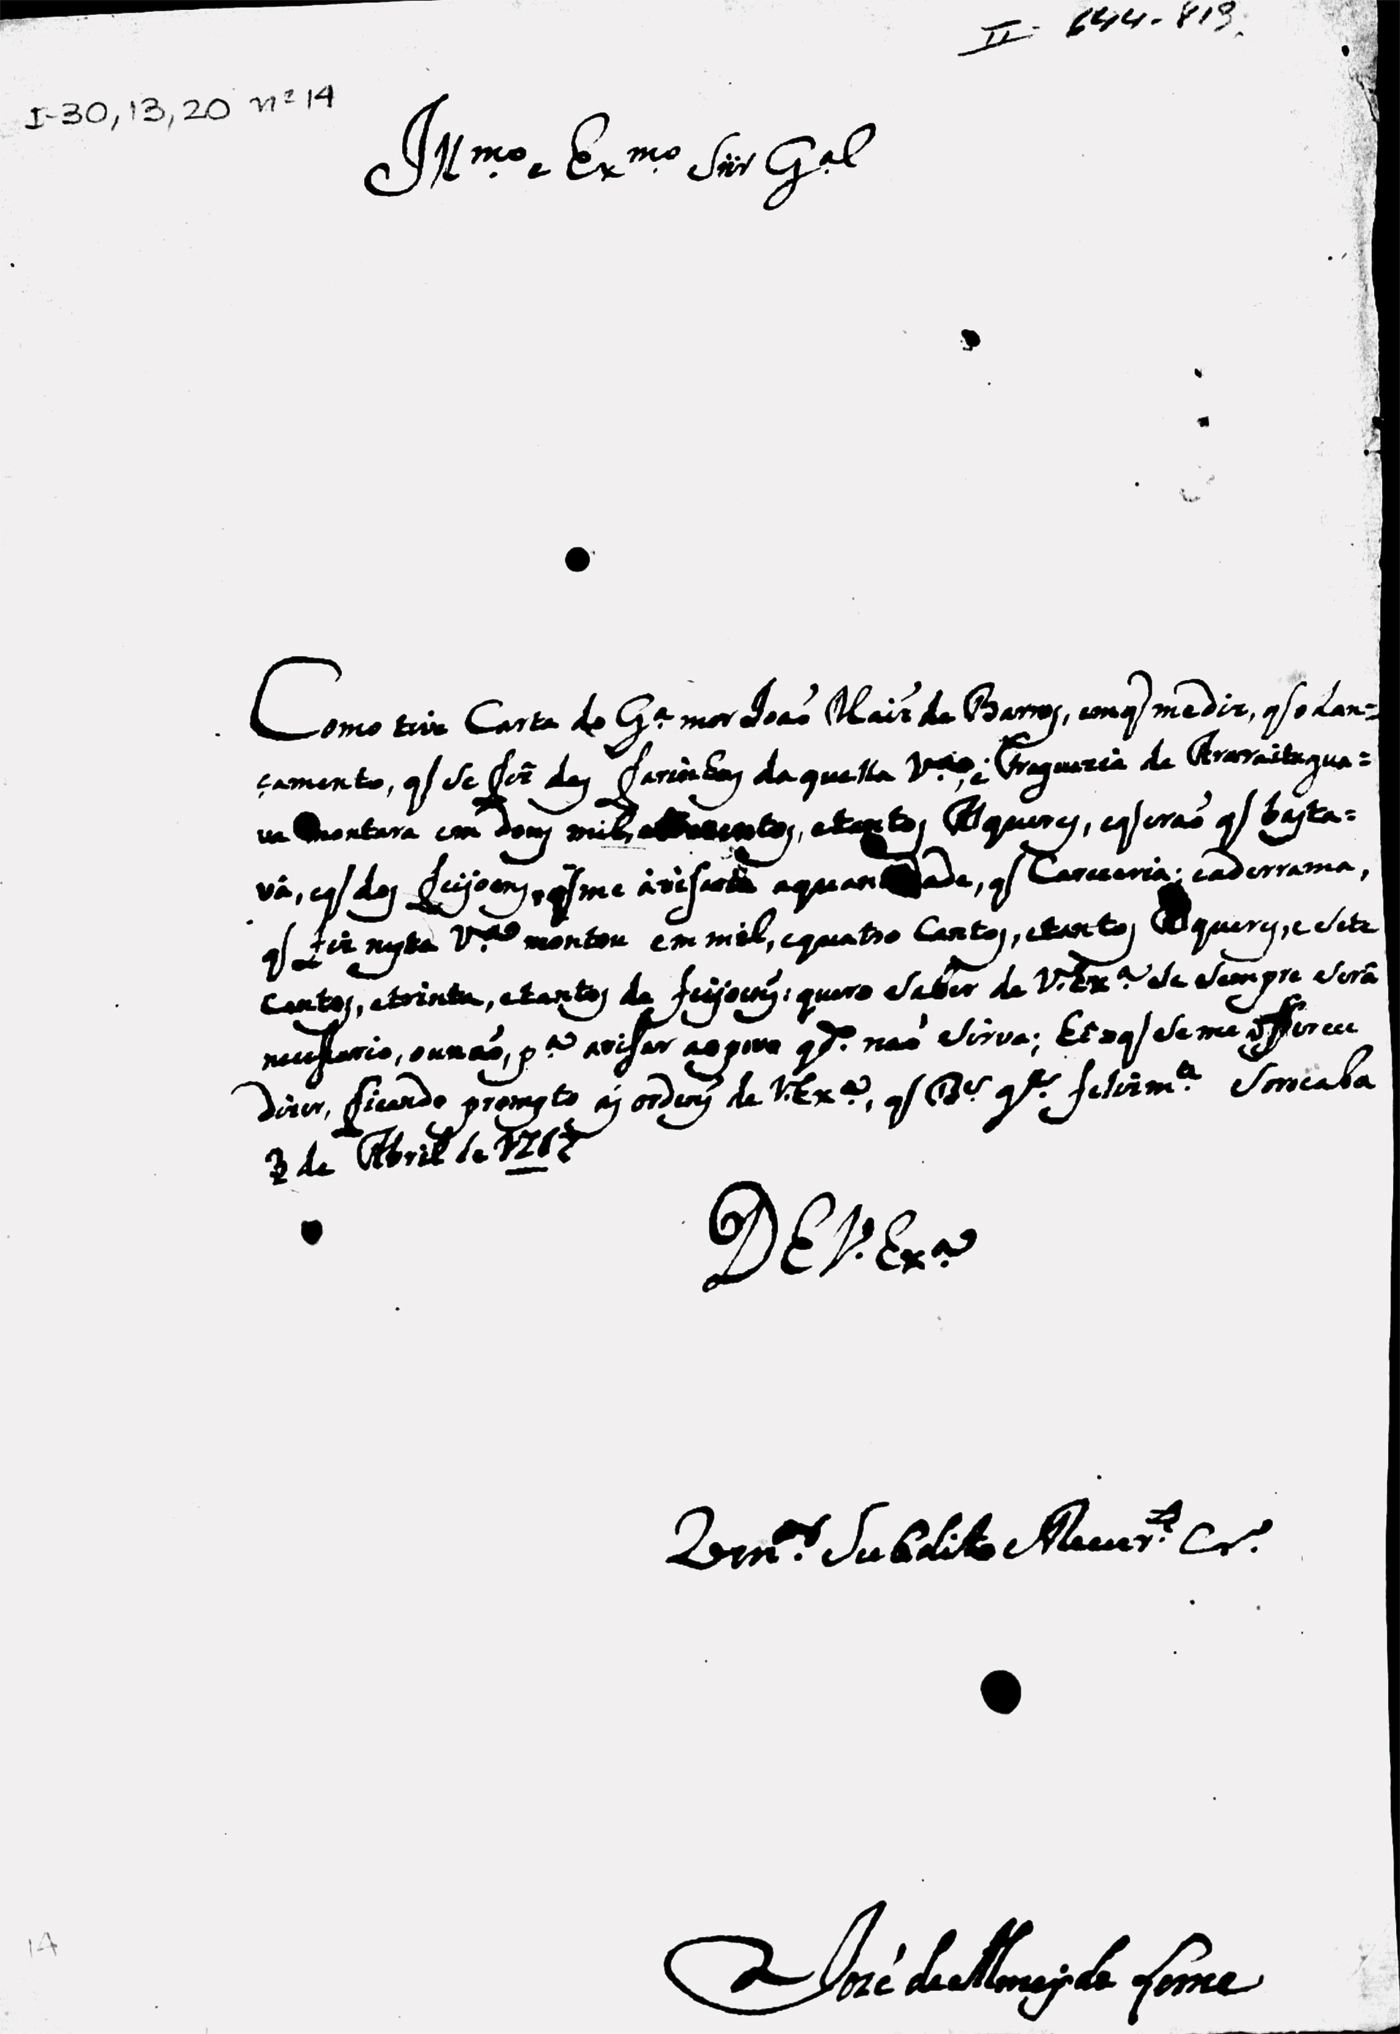 II - 644-819.
I-30,13,20 nº 14
Illmo. e Exmo. Snr Gal
Como tive Carta do Ga. mor João de Barros, emq medis, q o Lan=
çamento, q se fes das farinhas daquella Va., e Freguezia de Araraitagua=
va montara em dous mil, etantos Alqueres, eq erão q basta=
vá, eq dos feijoens, q me avisaria aquantidade, q Careceria; eaderrama,
q fis nesta Va. montou em mil, equatro Centos, etantos Alqueres, e sete
Centos, etrinta, etantos de feijoens: quero saber de V. Exa. se sempre será
necessario, ounão, pa. avisar aopovo qdo. não sirva; Eh oq se me offerece
dizer, ficando prompto ás ordens de V. Exa., q Ds. gde. felizmte. Sorocaba
3 de Abril de
DE V. Exa.
Subdito Cr.
José de Almeyda Leme
14